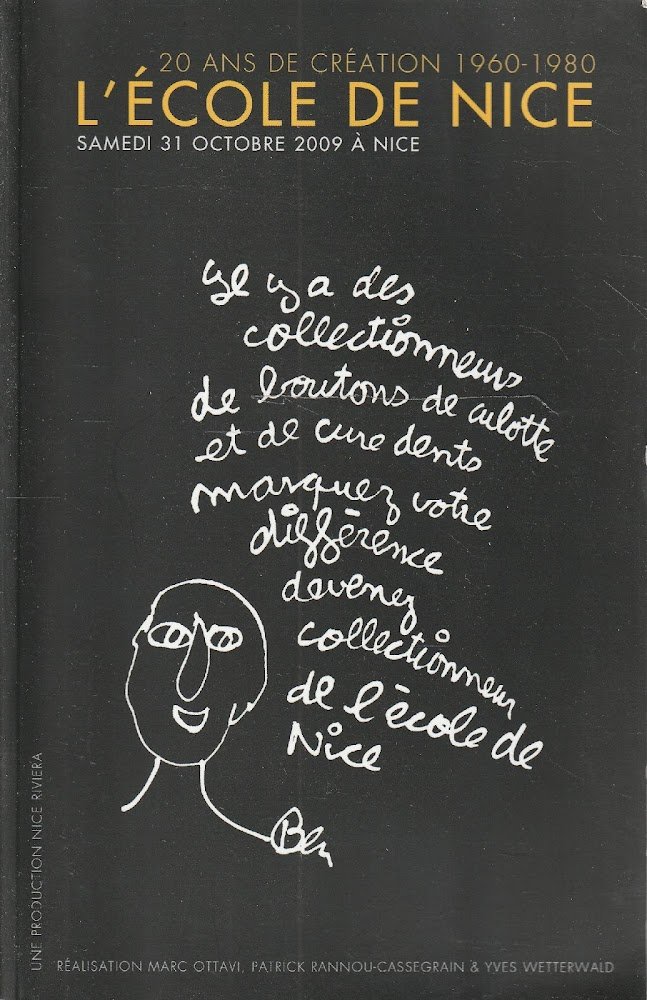 20 ANS DE CRÉATION 1960-1980
L'ÉCOLE DE NICE
SAMEDI 31 OCTOBRE 2009 À NICE
ye y a des
collectionneurs
de boutons de culotte
et de cure dents
marquez votre
différence
devenez
collectionneur
de l'école de
Nice
Ben
UNE PRODUCTION NICE RIVIERA
RÉALISATION MARC OTTAVI, PATRICK RANNOU-CASSEGRAIN & YVES WETTERWALD